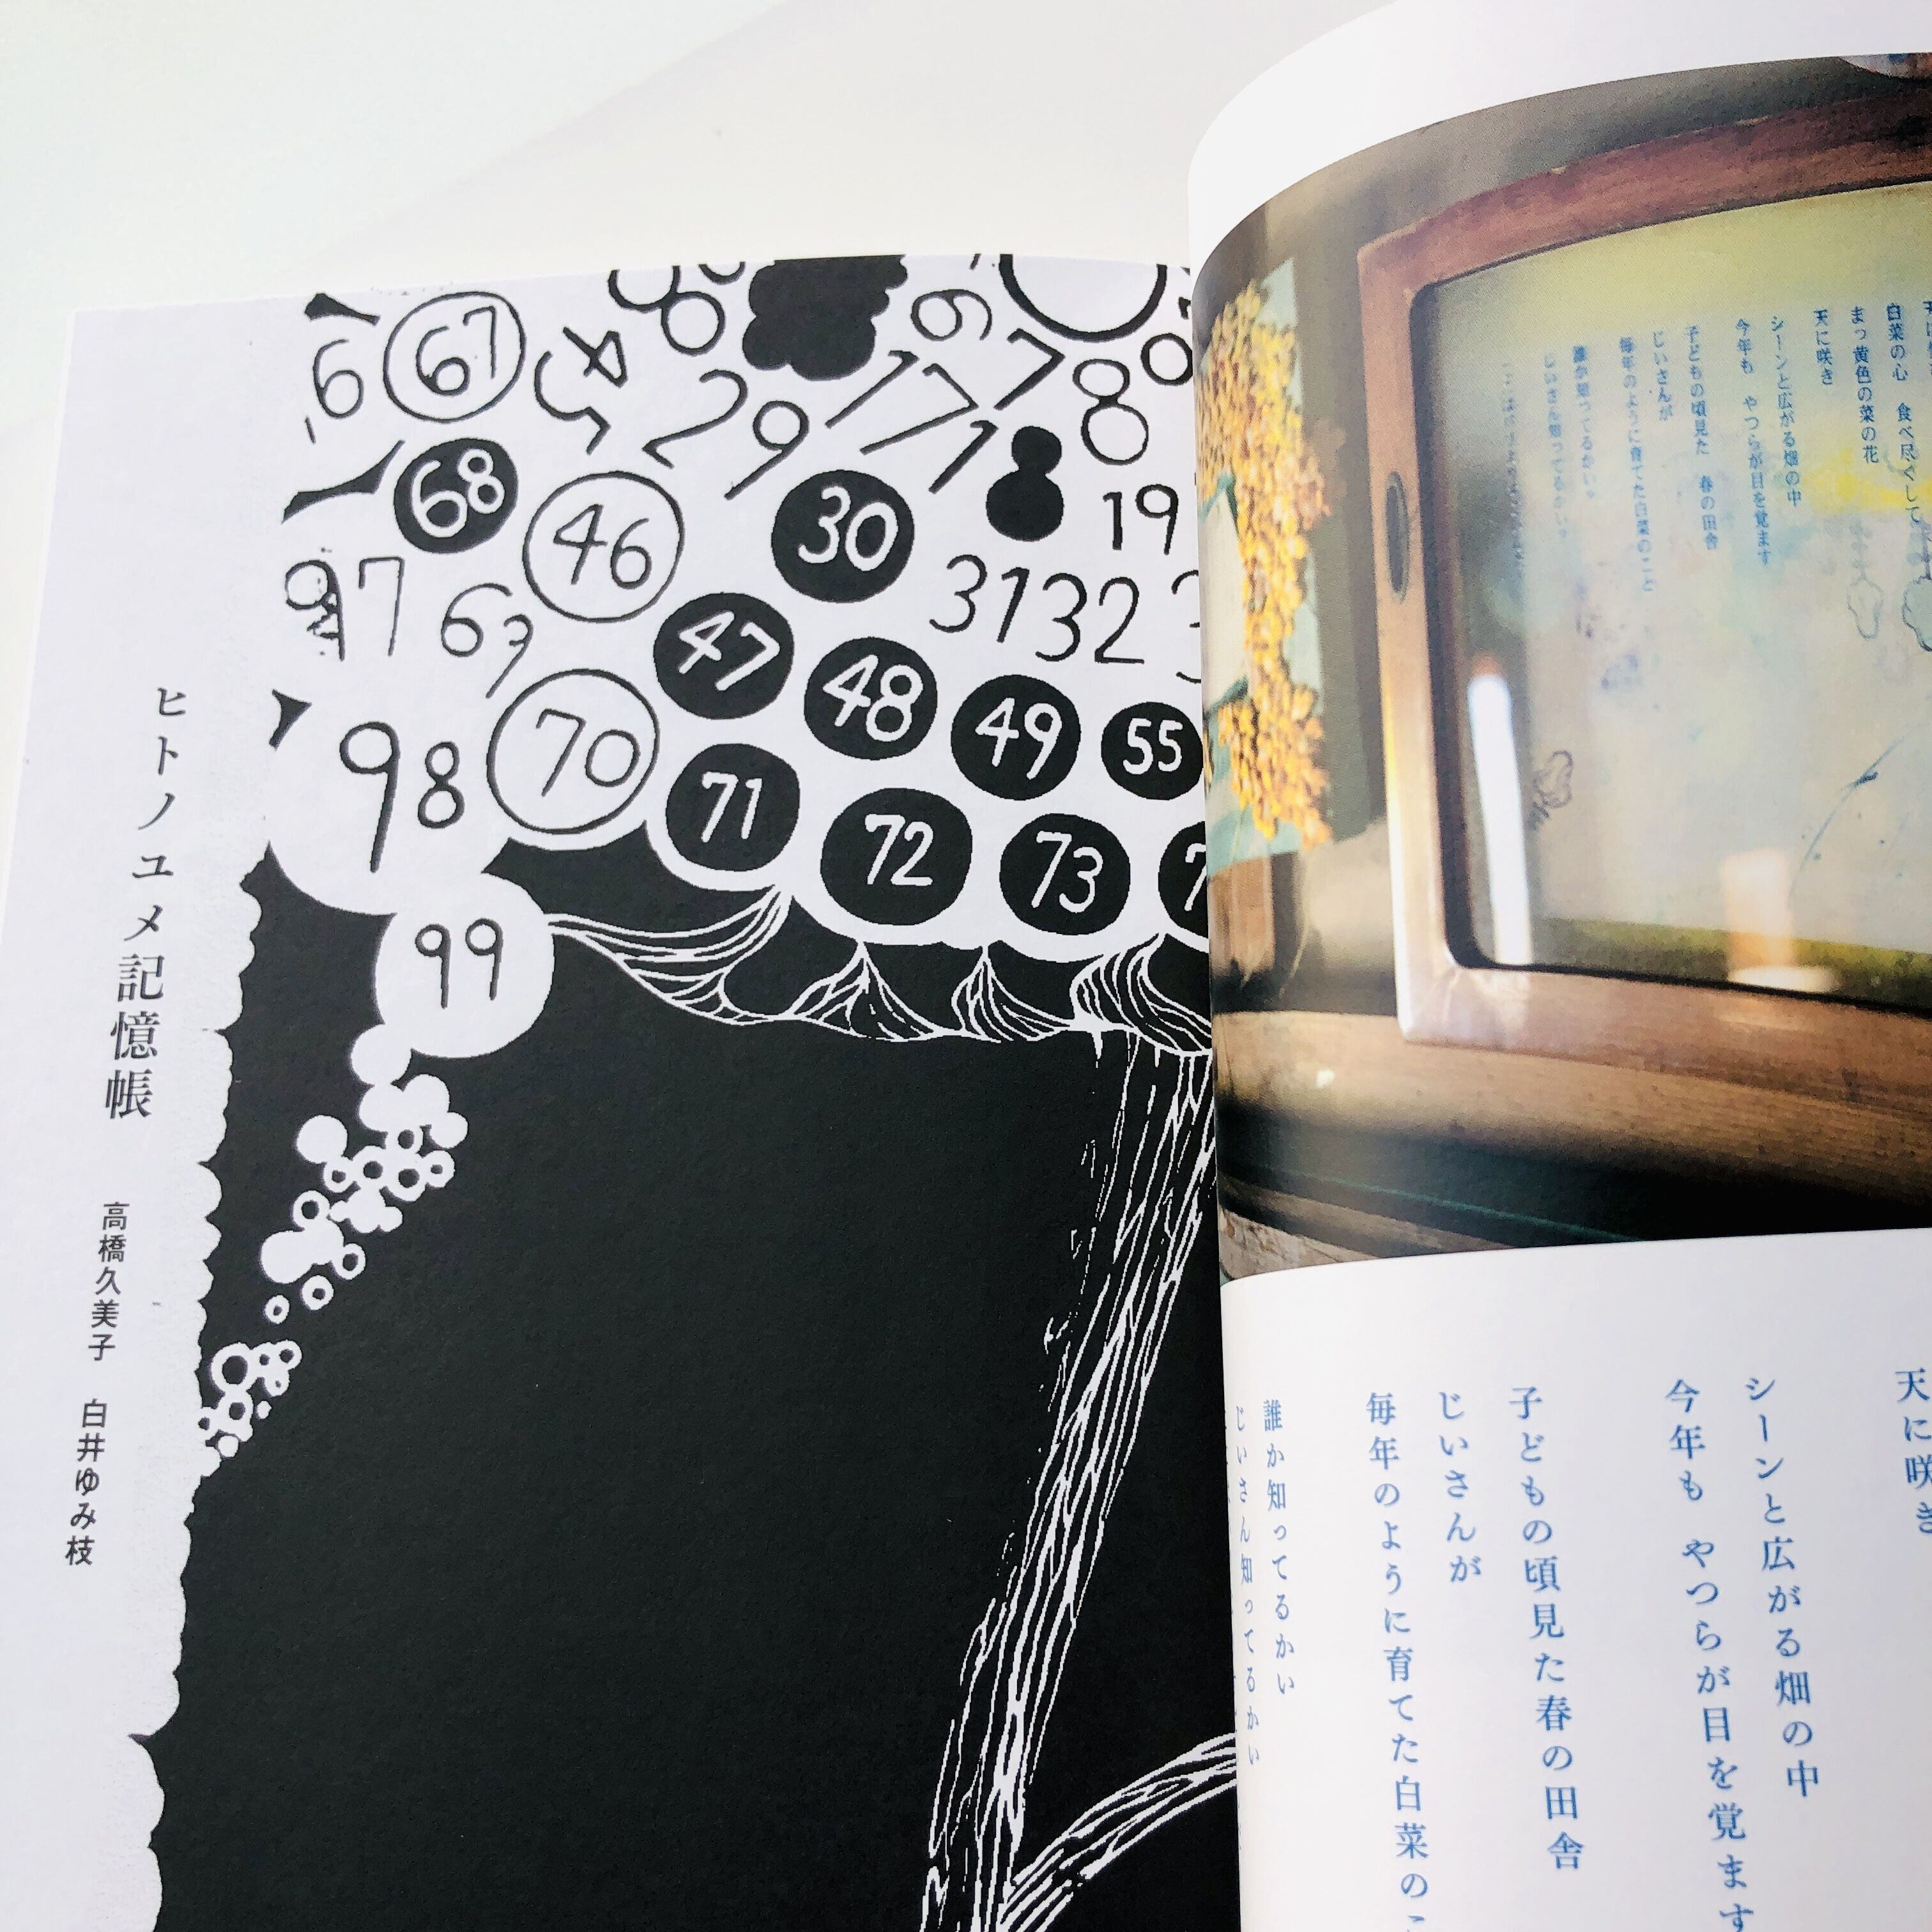 ヒトノユメ記憶帳
高橋久美子 白井ゆみ枝
67
68
46
30
19
29
17
8
31 32
97
69
47
48
49
55
98
70
71
72
73
99
白菜の心 食べ尽くして
まっ黄色の菜の花
天に咲き
シーンと広がる畑の中
今年も やつらが目を覚ます
子どもの頃見た 春の田舎
じいさんが
毎年のように育てた白菜のこと
誰か知ってるかい
じいさん知ってるかい
天に咲き
シーンと広がる畑の中
今年も やつらが目を覚ます
子どもの頃見た春の田舎
じいさんが
毎年のように育てた白菜のこ
誰か知ってるかい
じいさん知ってるかい